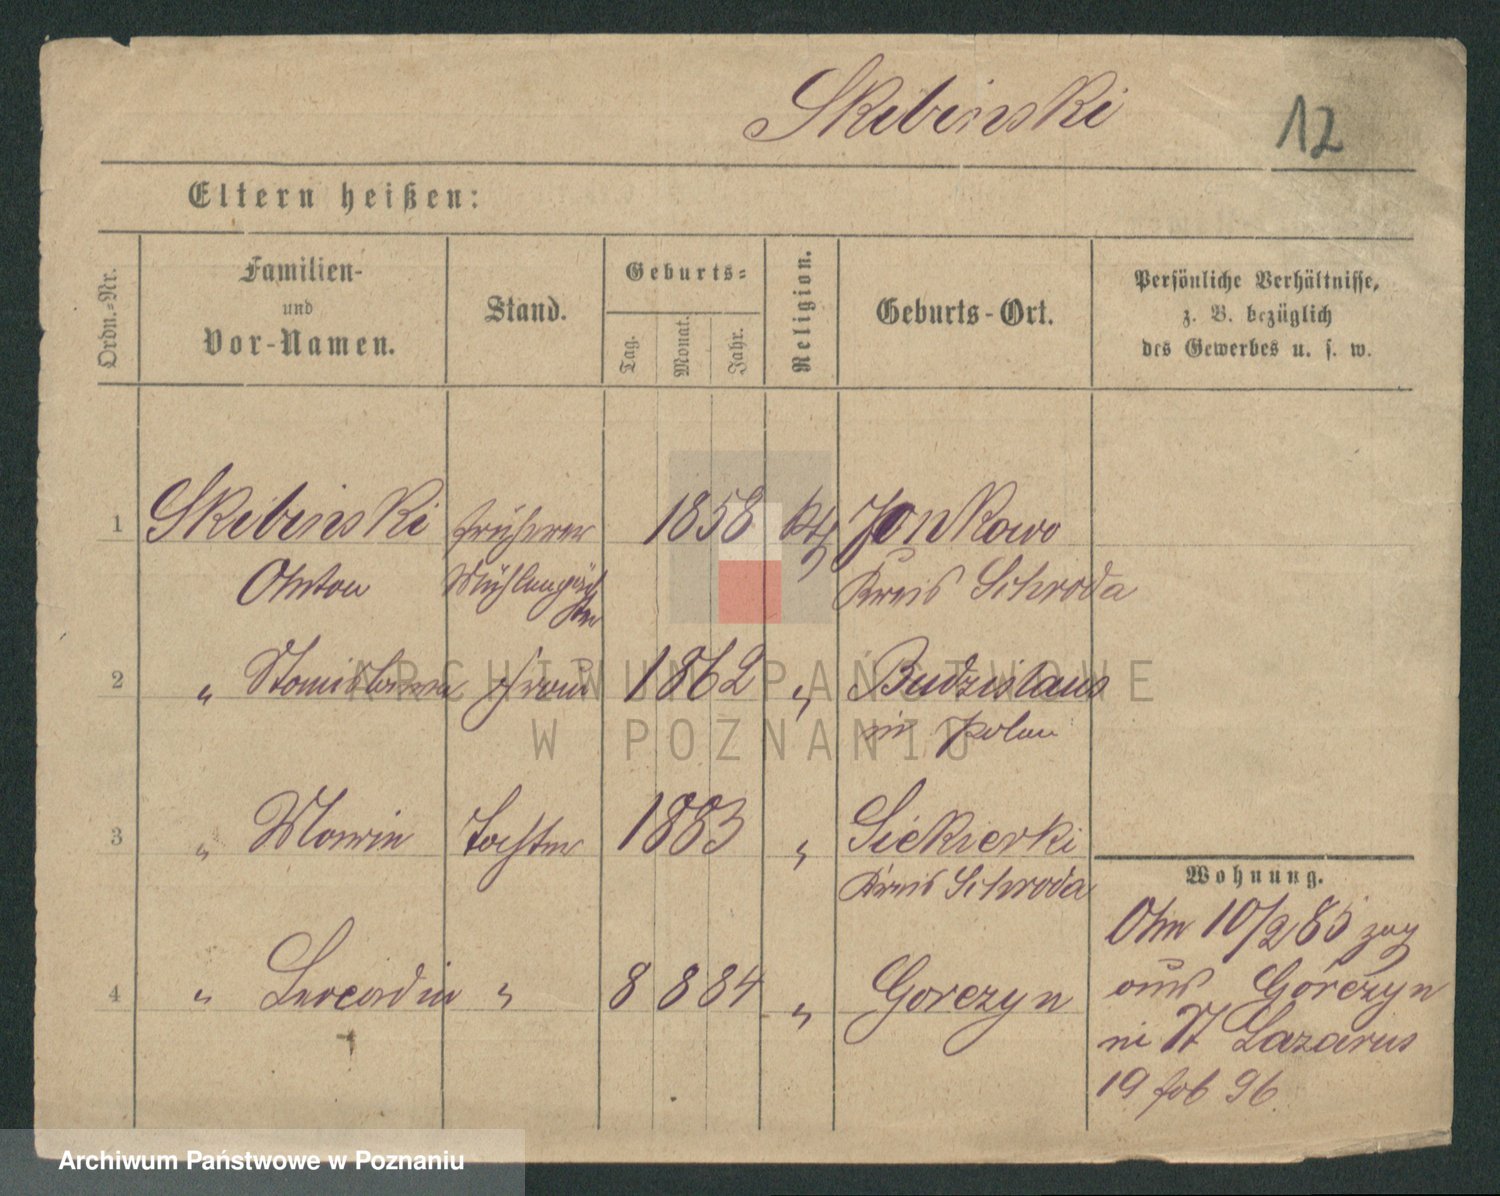 Skibinski
12
Eltern heißen:
Ordn.-Nr.
Familien-
und
Vor-Namen.
Stand.
Geburts-
Tag.
Monat.
Jahr.
Religion.
Geburts-Ort.
Persönliche Verhältnisse,
z. B. bezüglich
des Gewerbes u. s. w.
1 Skibinski früherer 1858 kth Jankowo
Anton Mühlenpäch Kreis Schroda
ter
2 " Stanislawa Frau 1862 " Budzislaus
in Polen
3 " Marie Tochter 1883 " Siekierki
Kreis Schroda
4 " Leocadia " 8 8 84 " Gorczyn
Wohnung.
Am 10/2 85 zog
aus Gorczyn
in St Lazarus
19 96
ARCHIWUM PAŃSTWOWE
W POZNANIU
Archiwum Państwowe w Poznaniu